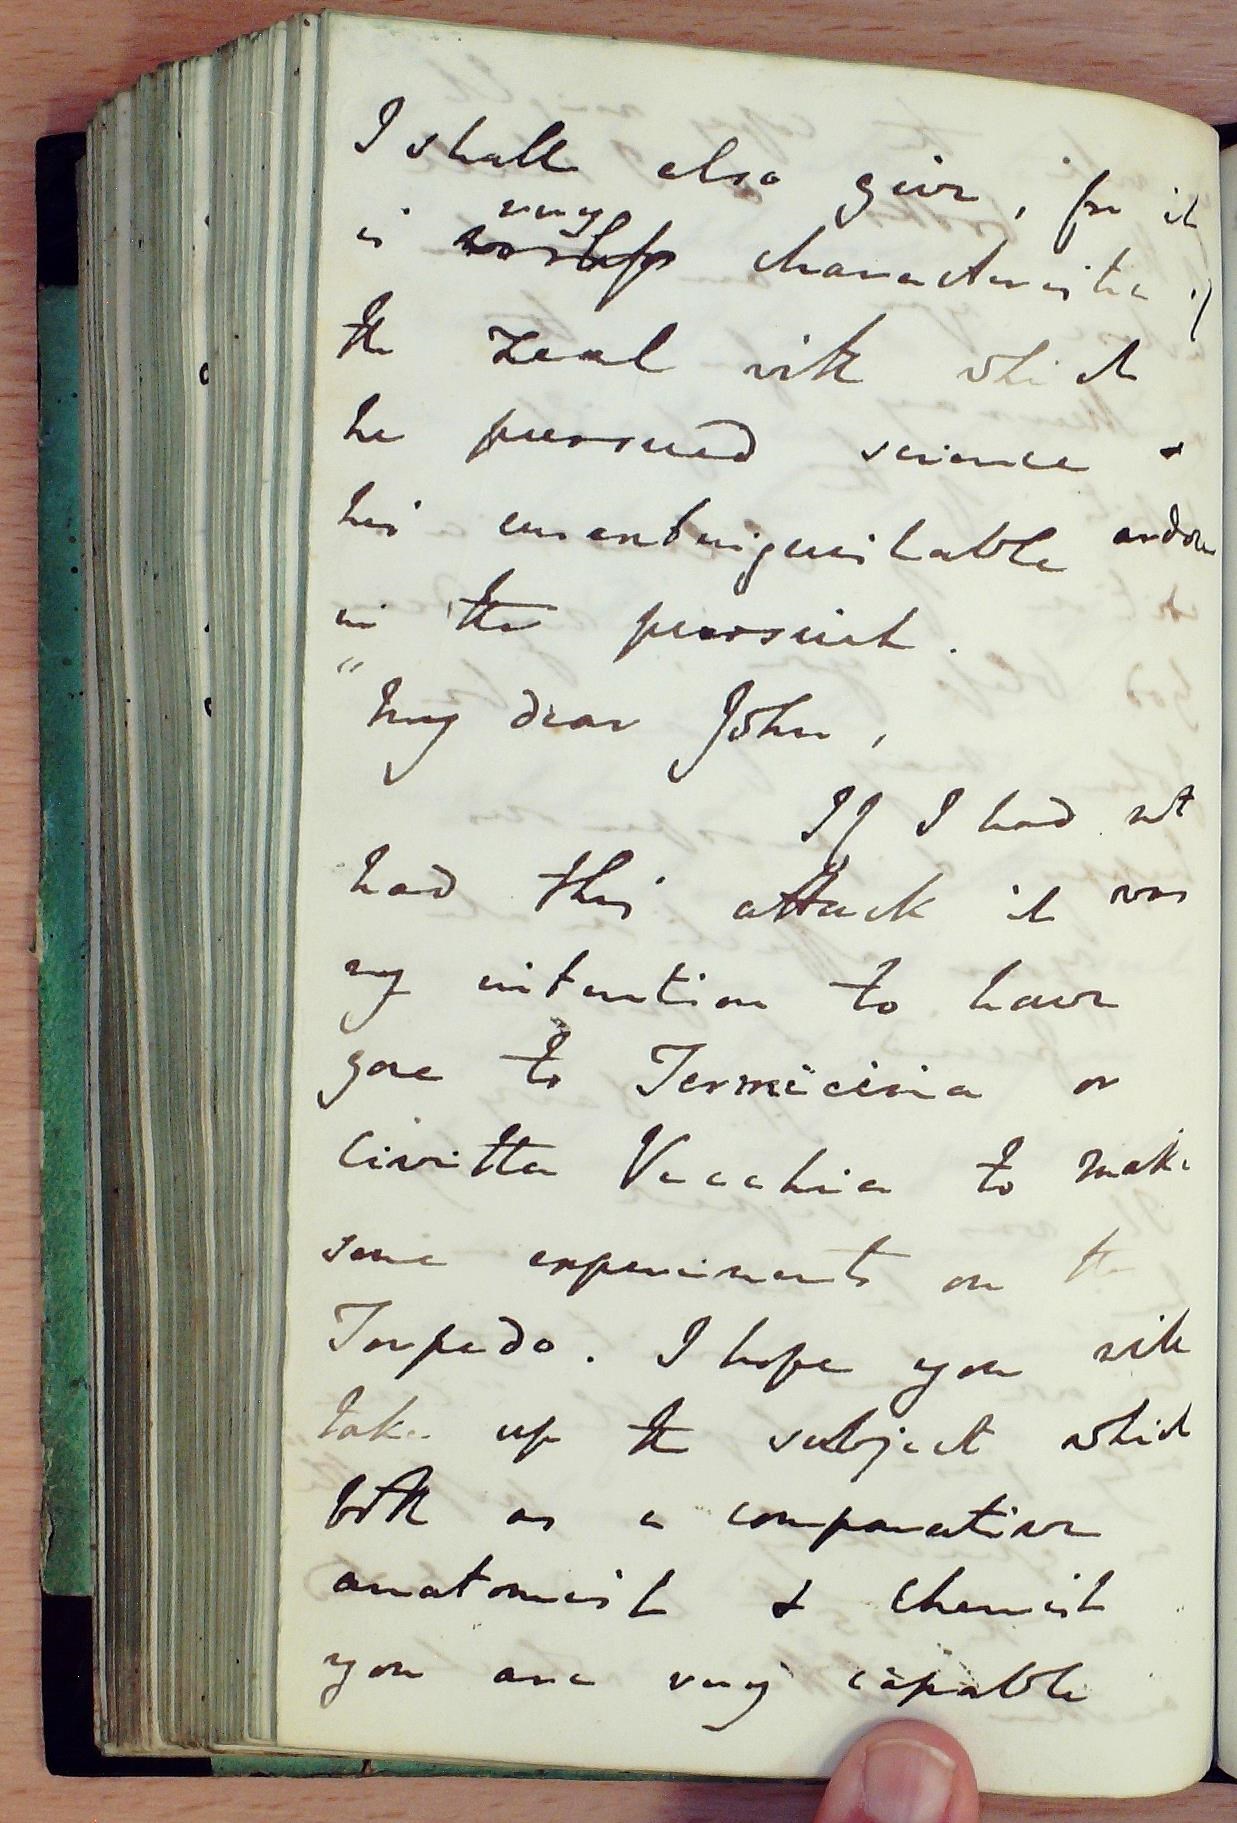 I shall also give, for it
very
is characteristic of
the zeal with which
he pursued science &
his unextinguishable ardour
in the pursuit.
"My dear John,
If I had not
had this attack it was
my intention to have
gone to Terracina or
Civitta Vecchia to make
some experiments on the
Torpedo. I hope you will
take up the subject which
both as a comparative
anatomist & chemist
you are very capable